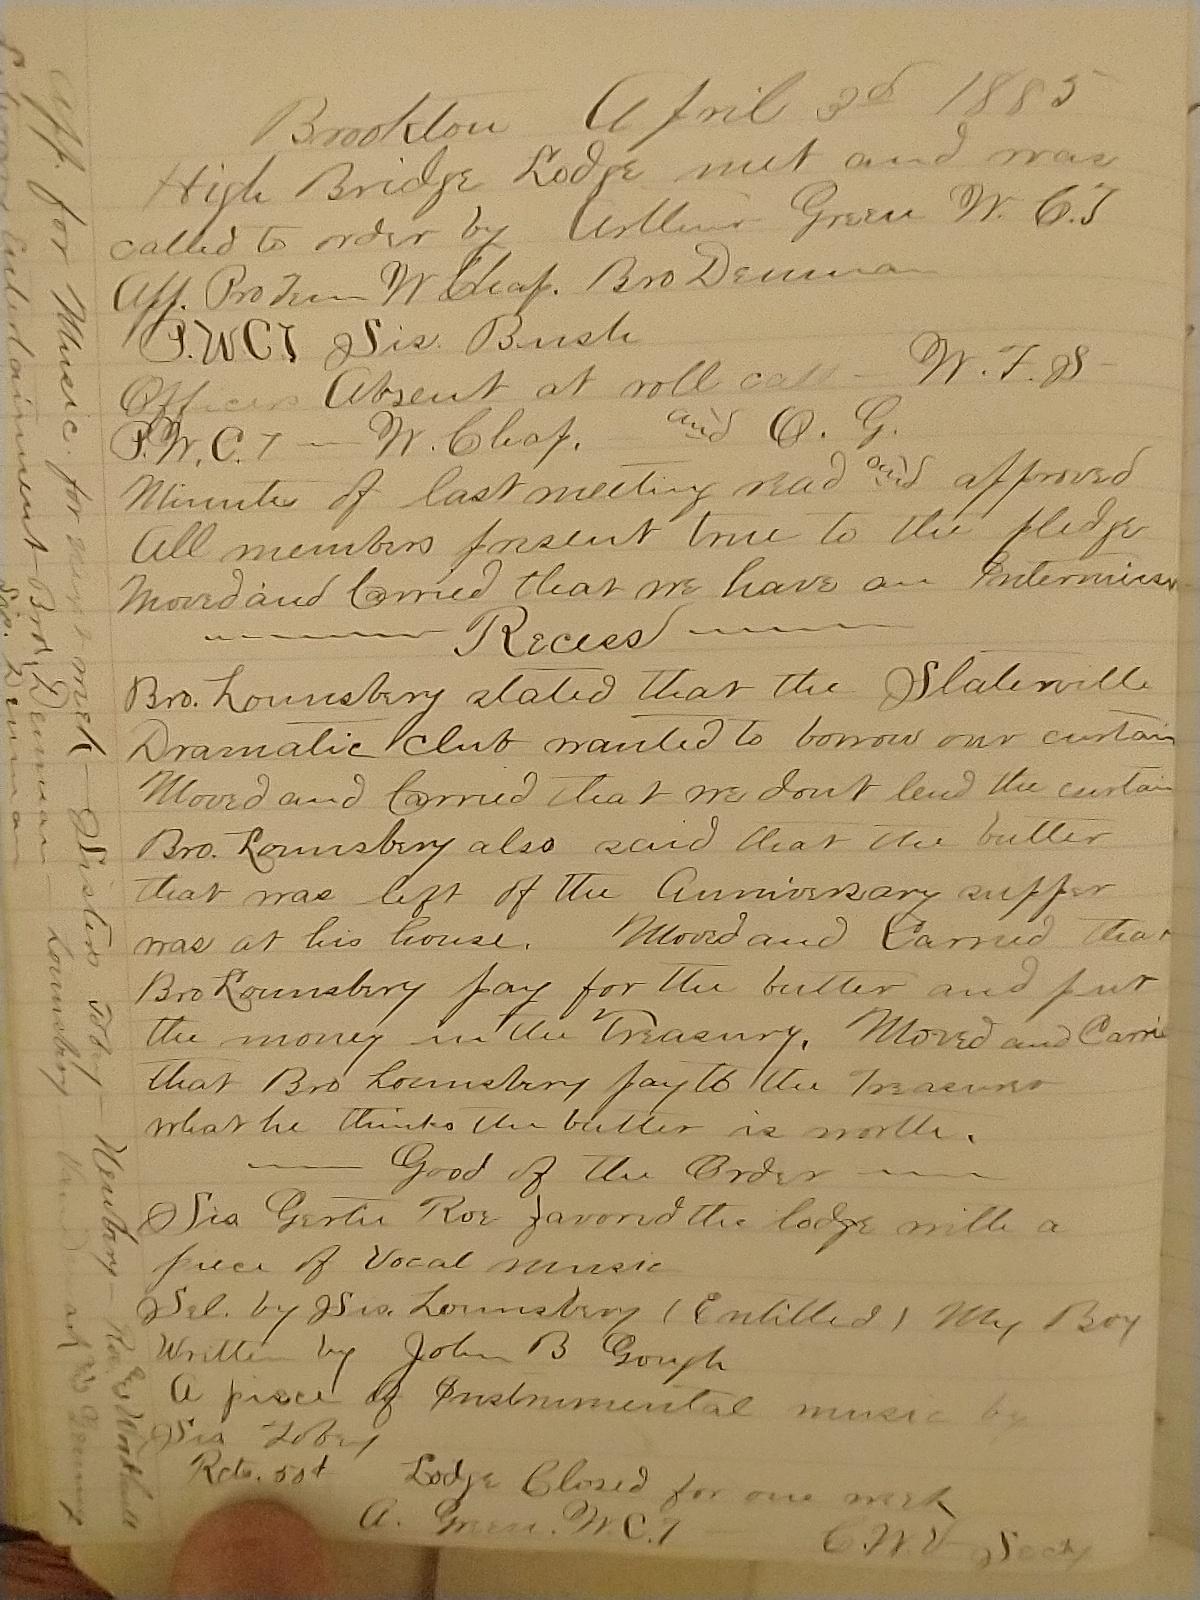 Brookton April 3d 1885
High Bridge Lodge met and was
called to order by Arthur Green W. C. T
App. Pro Tem W Chap. Bro Denman
P.W.C.T Sis. Bush
Officers Absent at roll call - W. T. S -
P.W.C.T - W. Chap. and O. G.
Minutes of last meeting read and approved
All members present true to the pledge
Moved and Carried that we have an Intermission
Recess
Bro. Lounsbery stated that the Slaterville
Dramatic club wanted to borrow our curtain
Moved and Carried that we dont lend the curtain
Bro. Lounsbery also said that the butter
that was left of the Anniversary supper
was at his house. Moved and Carried that
Bro Lounsbery pay for the butter and put
the money in the Treasury. Moved and Carrie
that Bro Lounsbery pay to the Treasurer
what he thinks the butter is worth.
Good of the Order
Sis Gertie Roe favored the lodge with a
piece of Vocal music
Sel. by Sis. Lounsbery (Entitled) My Boy
Written by John B Gough
A piece of Instrumental music by
Sis Tobey
Rcts. 50¢ Lodge Closed for one week
A. Green. W.C.T C.W.V Secty
App. for Music for next week - Sisters Tobey - Newbry - Roe
Entertainment - Bro. Denman - Lounsbery
Sis. Denman